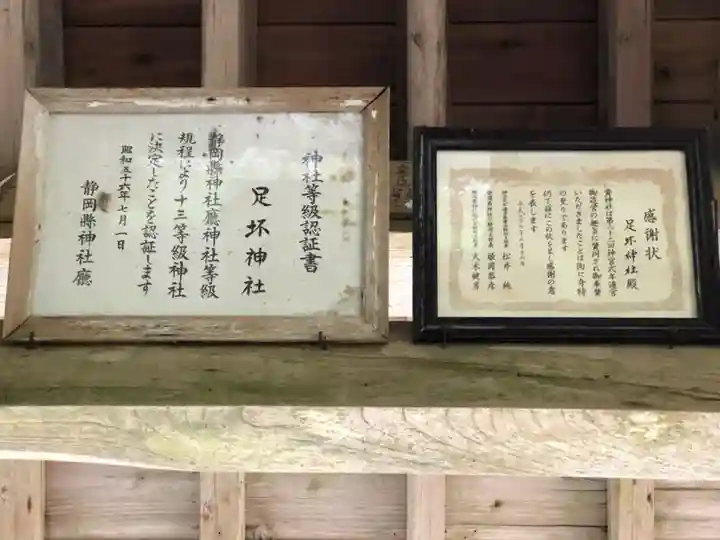 神社等級認証書
足坏神社
静岡縣神社廳神社等級
規程により十三等級神社
に決定したことを認証します
昭和五十六年七月一日
静岡縣神社廳
感謝状
足坏神社殿
貴神社は第六十二回神宮式年遷宮
御造営の趣旨に賛同され御奉賛
いただきましたことは洵に奇特
の至りであります
仍て茲にこの状を呈し感謝の意
を表します